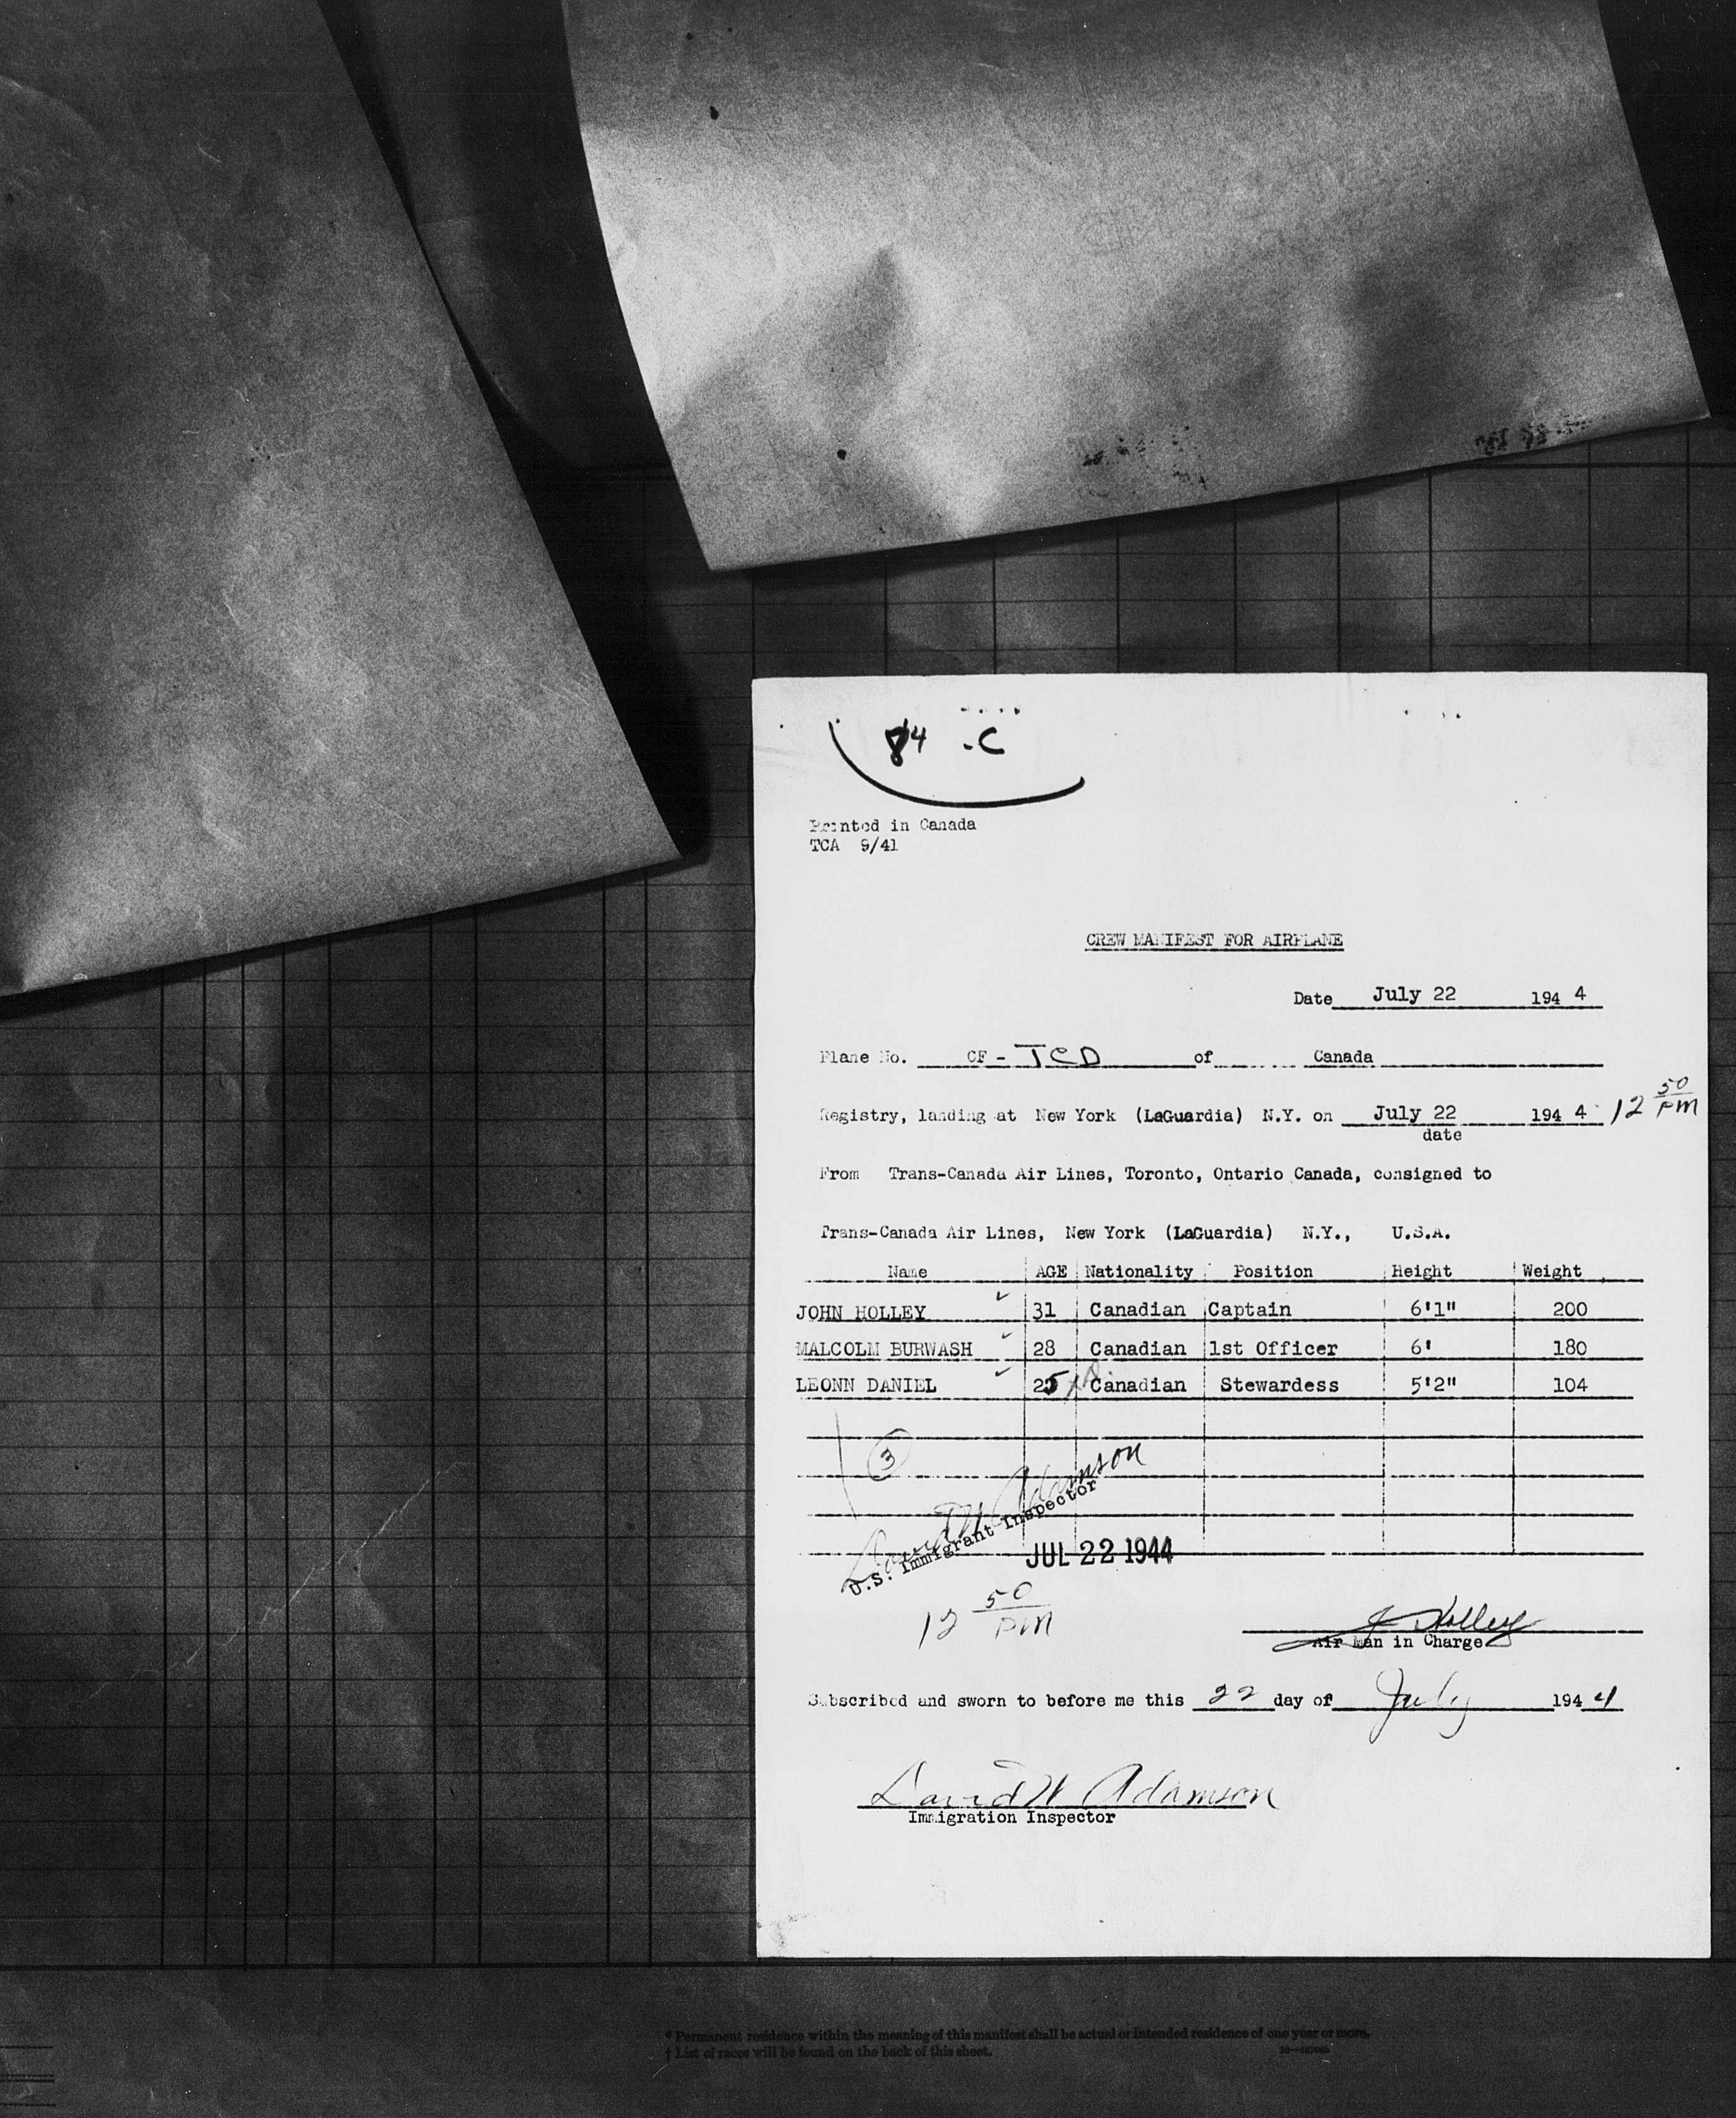 84 -C
Printed in Canada
TCA 9/41
CREW MANIFEST FOR AIRPLANE
Date July 22 194 4
Plane No. CF - TCD of Canada
Registry, landing at New York (LaGuardia) N.Y. on July 22 194 4 12 50 PM
date
From Trans-Canada Air Lines, Toronto, Ontario Canada, consigned to
Trans-Canada Air Lines, New York (LaGuardia) N.Y., U.S.A.
Name AGE Nationality Position Height Weight
JOHN HOLLEY ✓ 31 Canadian Captain 6'1" 200
MALCOLM BURWASH ✓ 28 Canadian 1st Officer 6' 180
LEONN DANIEL ✓ 25 Canadian Stewardess 5'2" 104
3
David W Adamson
U.S. Immigrant Inspector
JUL 22 1944
12 50 PM
J Holley
Air Man in Charge
Subscribed and sworn to before me this 22 day of July 194 4
David W Adamson
Immigration Inspector
* Permanent residence within the meaning of this manifest shall be actual or intended residence of one year or more.
† List of races will be found on the back of this sheet.